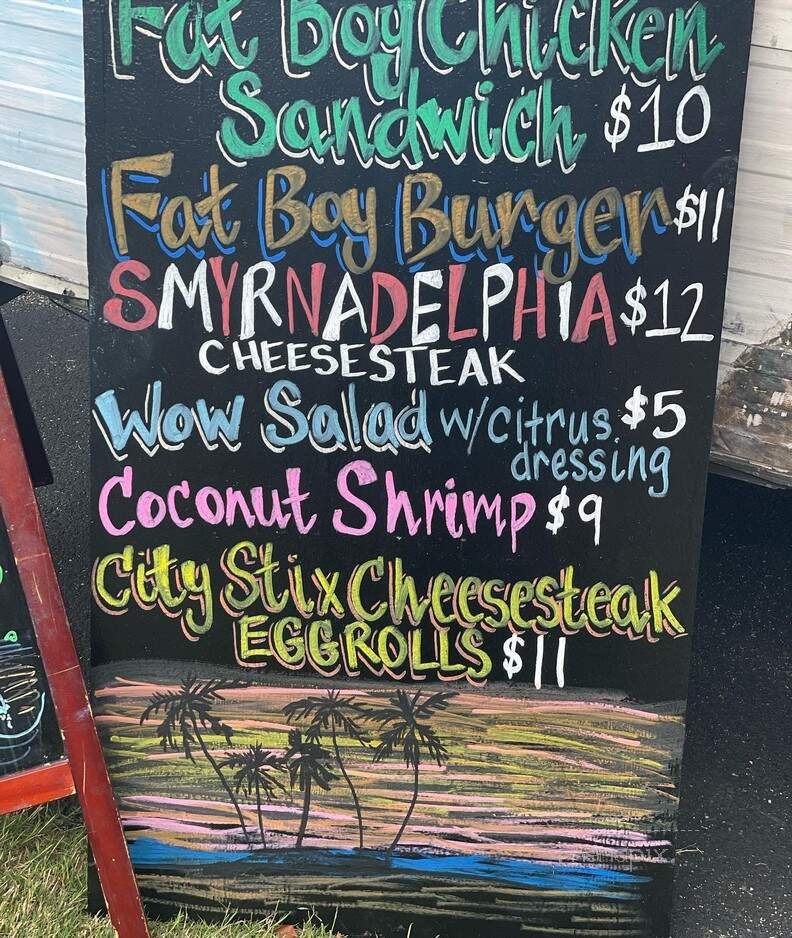 Fat Boy Chicken
Sandwich $10
Fat Boy Burger $11
SMYRNADELPHIA $12
CHEESESTEAK
Wow Salad w/citrus $5
dressing
Coconut Shrimp $9
City Stix Cheesesteak
EGGROLLS $11